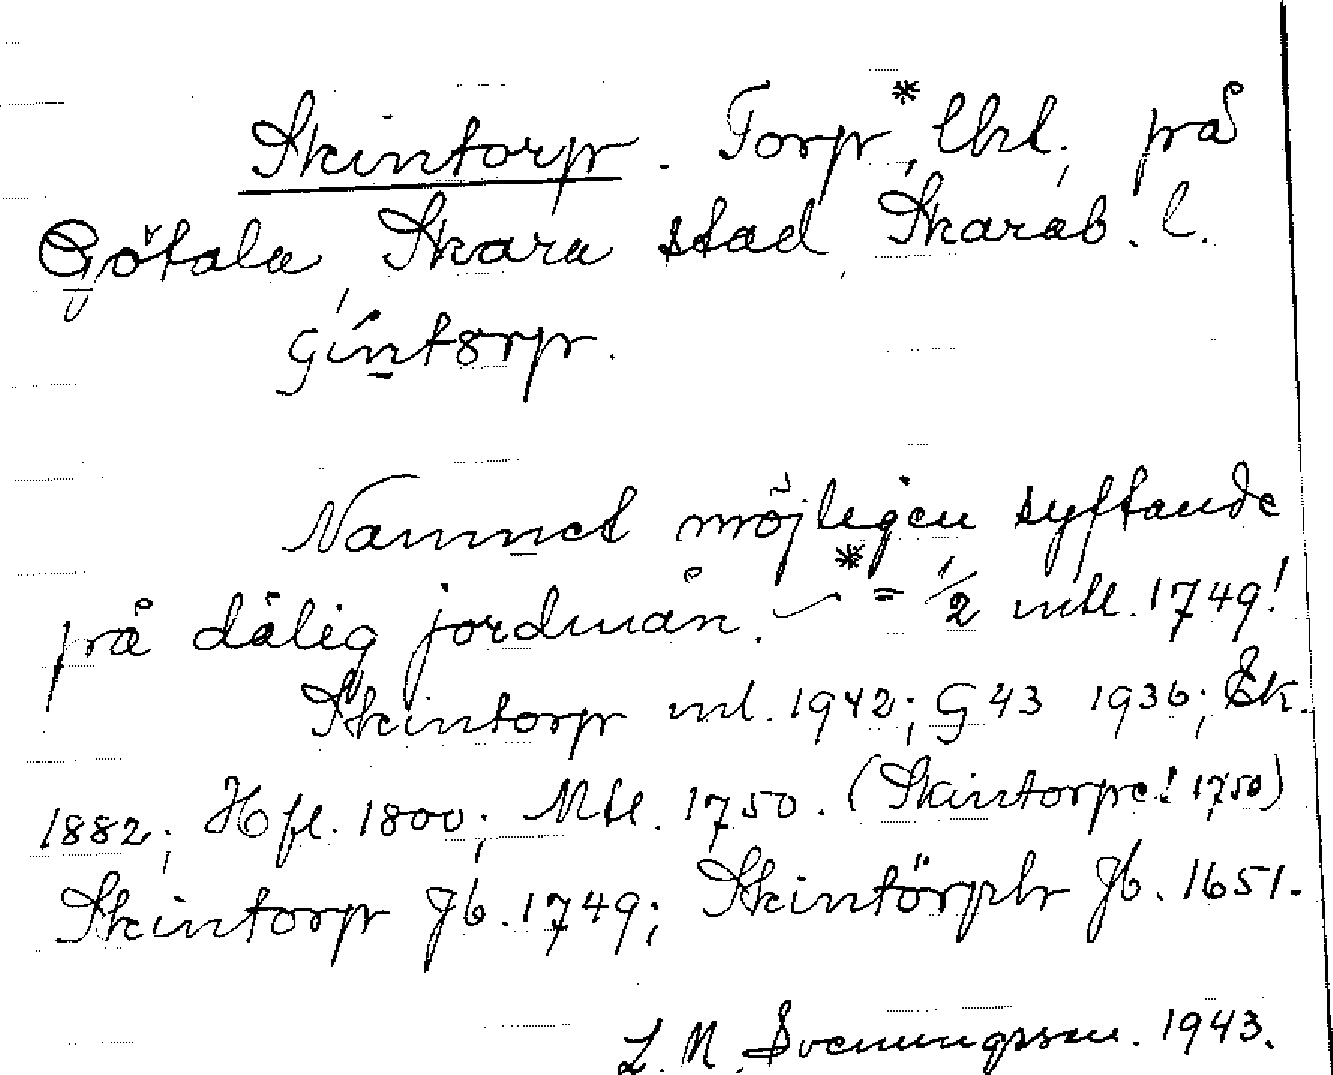 Skintorp. Torp*, lht., på
Götala, Skara stad, Skarab. l.
Namnet möjligen syftande
på dålig jordmån. * = 1/2 mtl. 1749!
Skintorp ml. 1942; G 43 1936; Ek.
1882; Hfl. 1800; Mtl. 1750. (Skintorpe! 1750)
Skintorp Jb. 1749; Skintörph Jb. 1651.
L. M. Svenungsson. 1943.